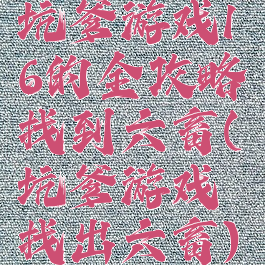 坑爹游戏1
6的全攻略
找到六畜(
坑爹游戏
找出六畜)